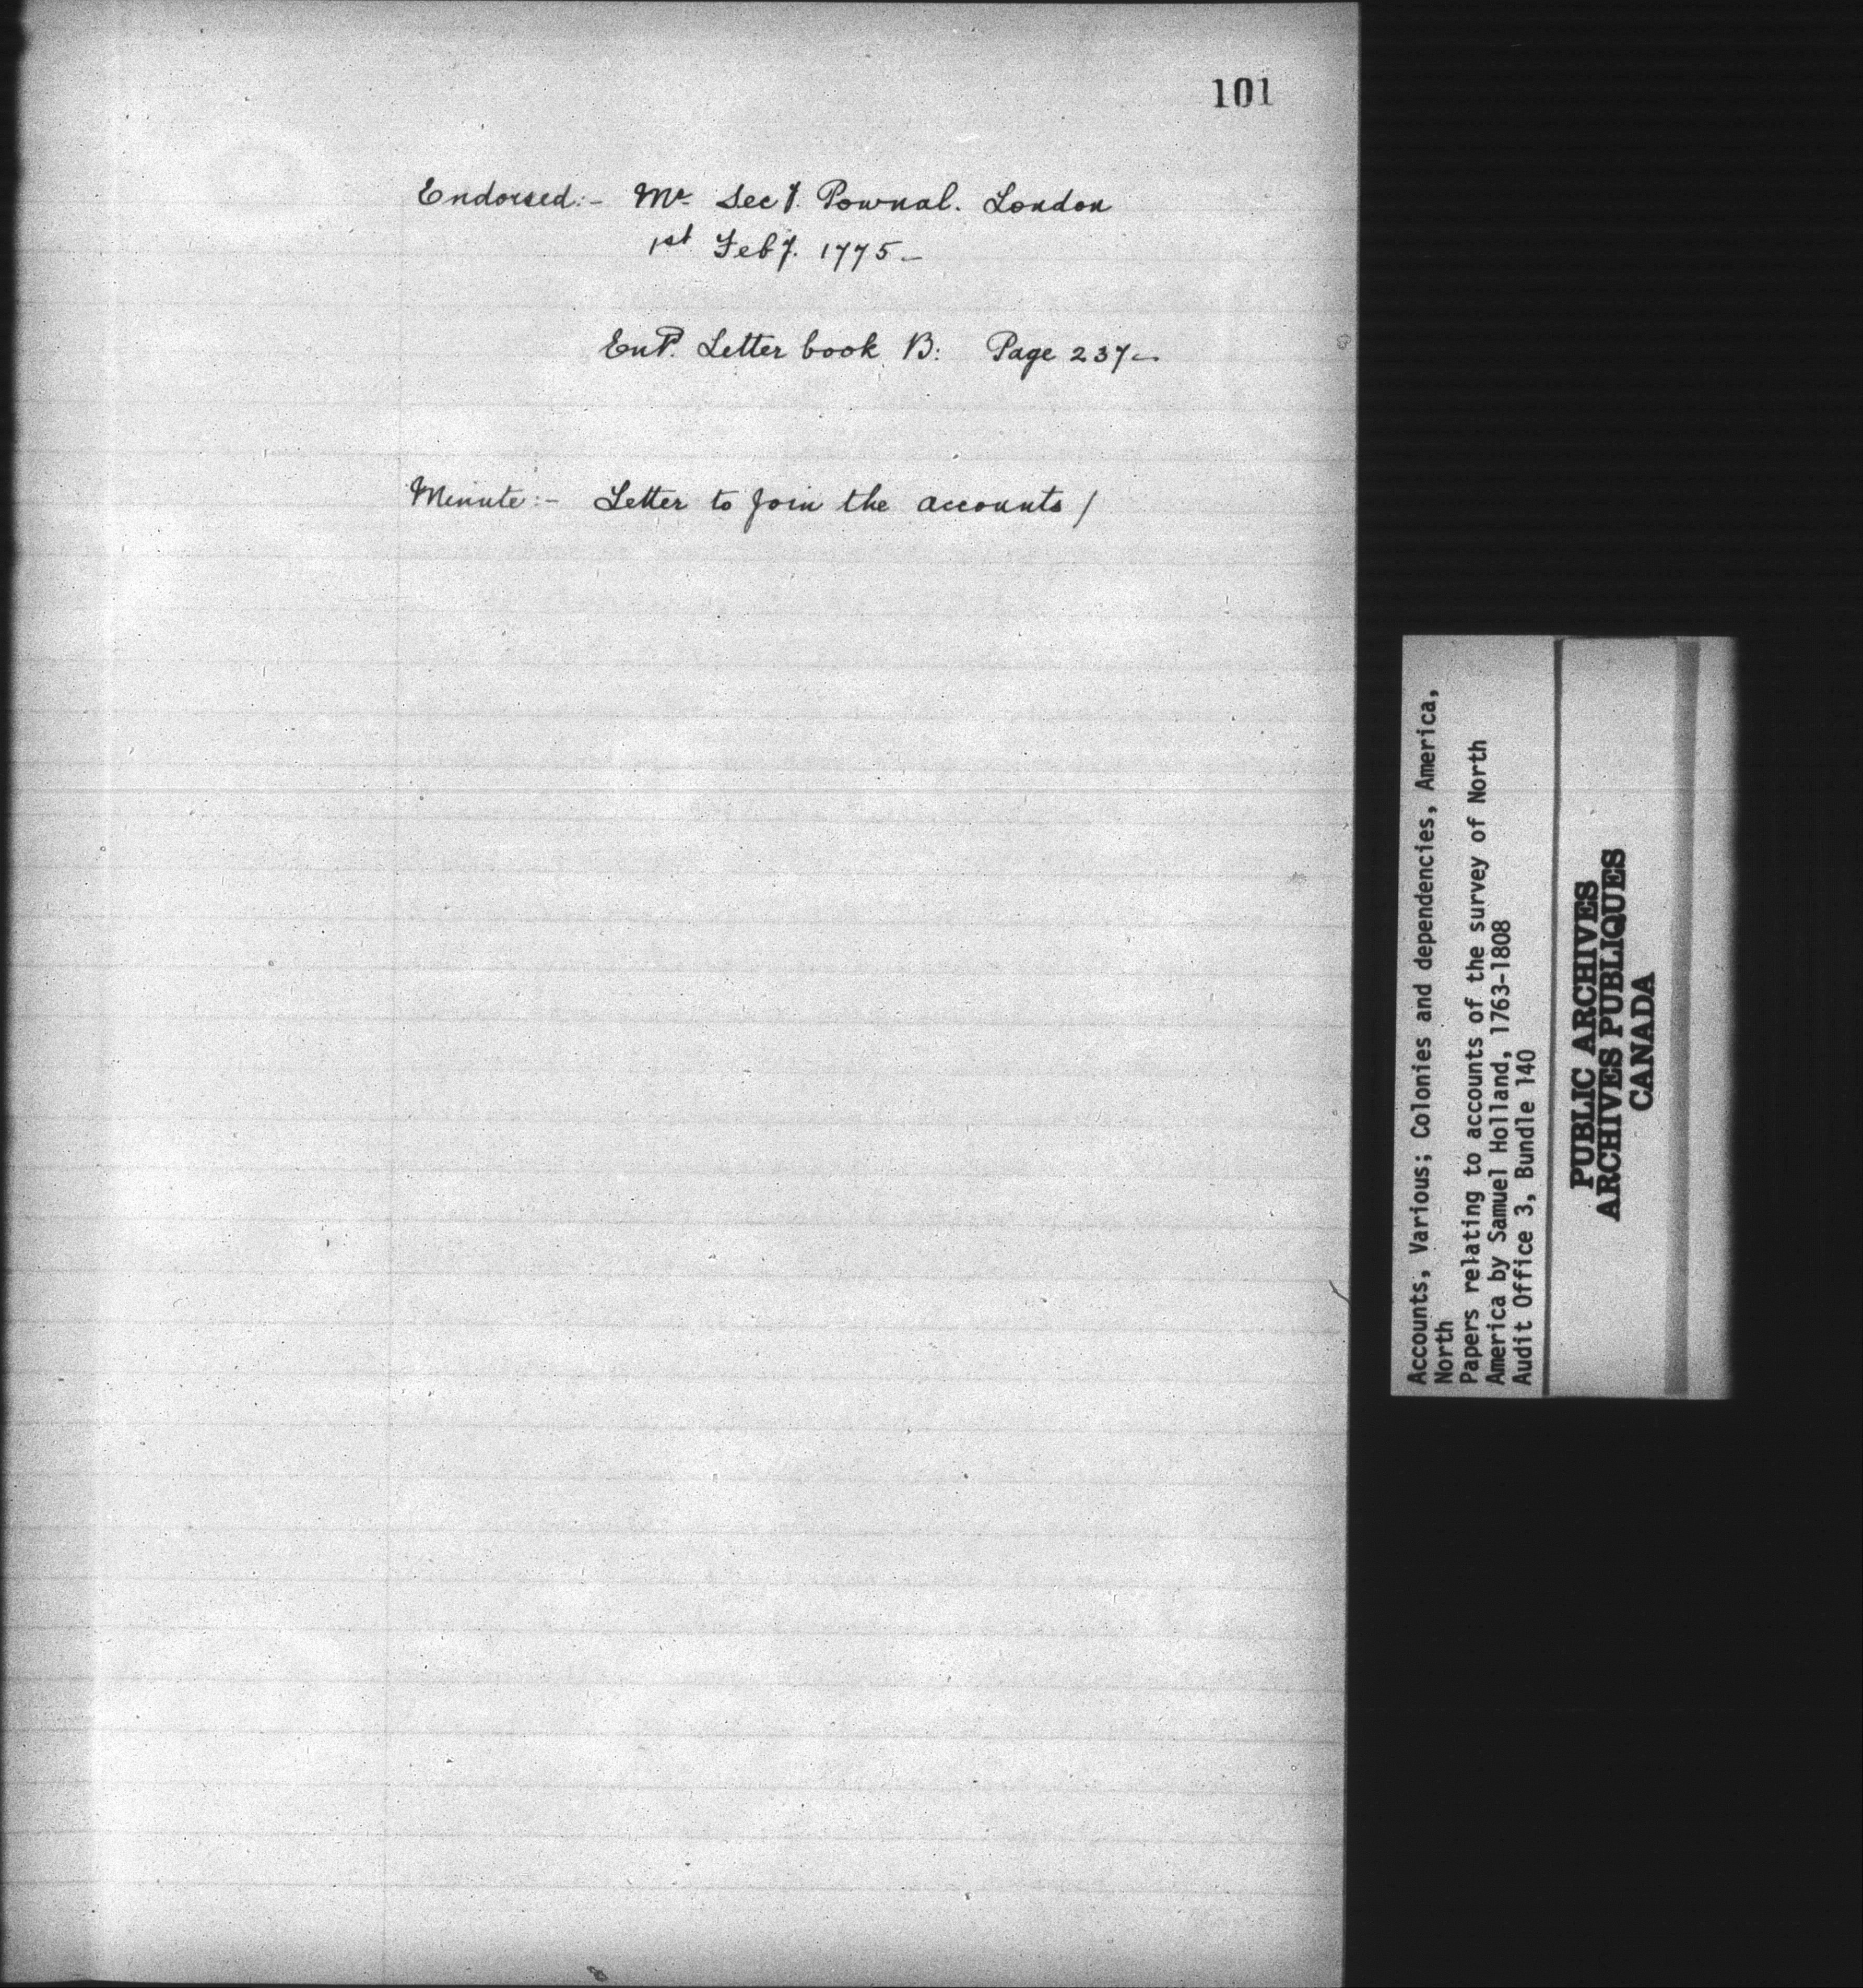 101
Endorsed:- Mr. Secy. Pownal. London
1st Feby. 1775-
Entd. Letter book B: Page 237-
Minute:- Letter to Join the accounts /
Accounts, Various; Colonies and dependencies, America,
North
Papers relating to accounts of the survey of North
America by Samuel Holland, 1763-1808
Audit Office 3, Bundle 140
PUBLIC ARCHIVES
ARCHIVES PUBLIQUES
CANADA